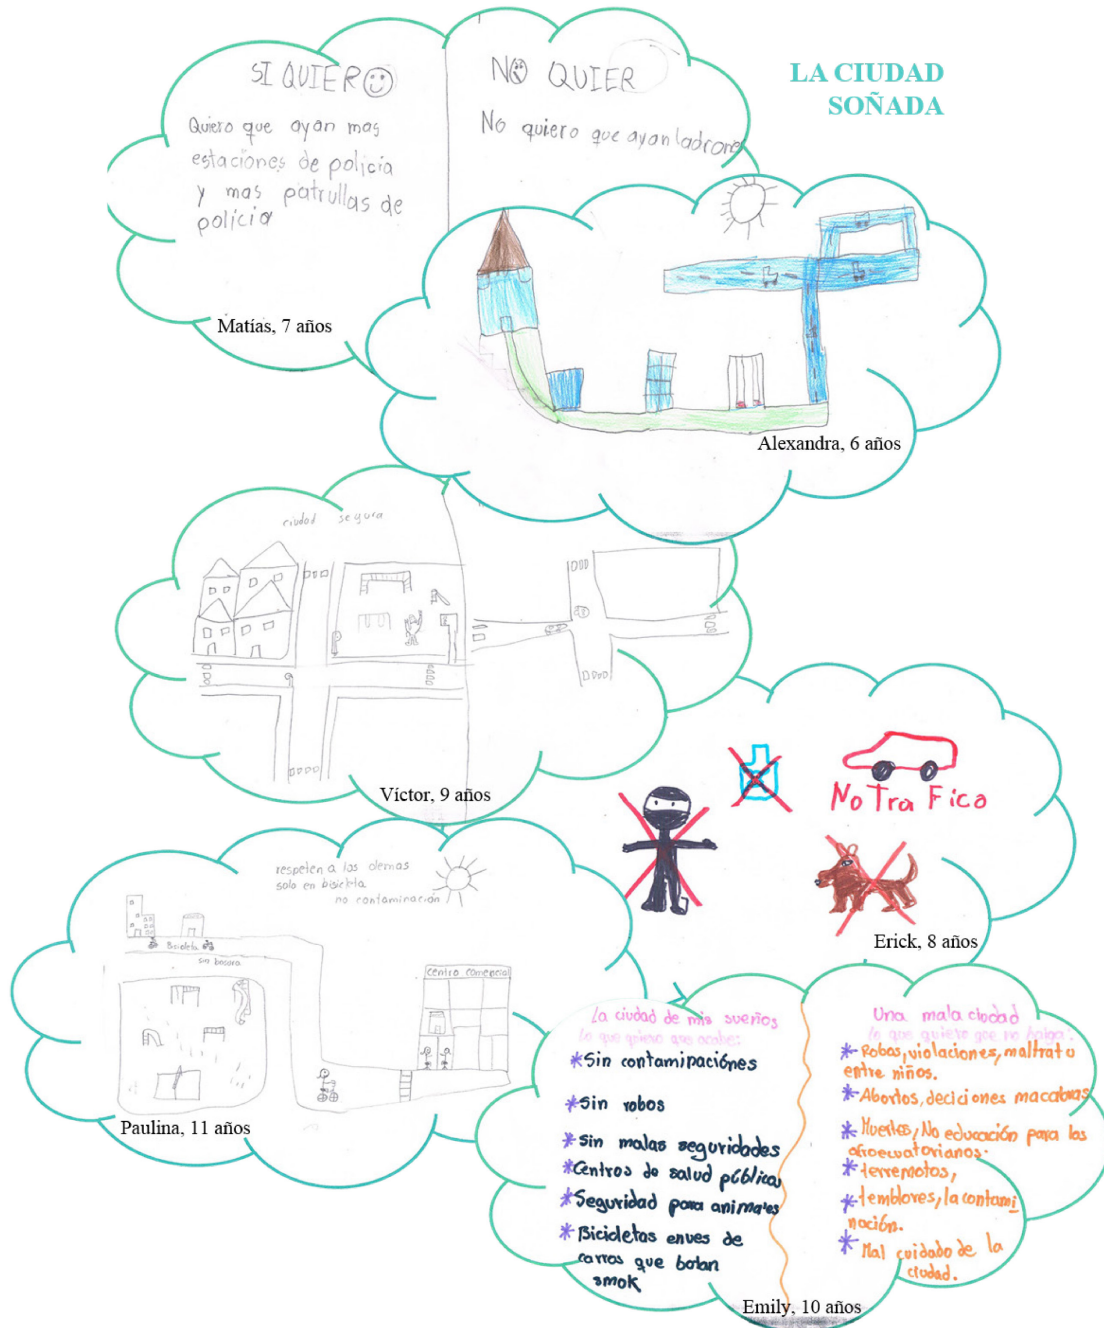 LA CIUDAD
SOÑADA
SI QUIERO
Quiero que ayan mas
estaciones de policía
y mas patrullas de
policia
NO QUIER
No quiero que ayan ladrones
Matías, 7 años
Alexandra, 6 años
ciudad segura
Víctor, 9 años
No Tra Fico
Erick, 8 años
respeten a los demas
solo en bisicleta
no contaminación
Bicicleta
sin basura
centro comercial
Paulina, 11 años
La ciudad de mis sueños
lo que quiero que acabe:
*Sin contaminaciónes
*Sin robos
*Sin malas seguridades
*Centros de salud públicos
*Seguridad para animales
*Bicicletas enves de
carros que botan
smok
Una mala ciudad
lo que quiero que no haiga:
*Robos, violaciones, maltrato
entre niños.
*Abortos, deciciones macabras
*Muertes, No educación para los
afroecuatorianos.
*terremotos,
*temblores, la contami
nación.
*Mal cuidado de la
ciudad.
Emily, 10 años